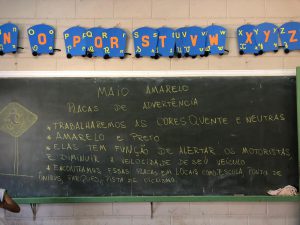 N O P Q R S T U V W X Y Z
MAIO AMARELO
PLACAS DE ADVERTÊNCIA
* TRABALHAREMOS AS CORES QUENTE E NEUTRAS
* AMARELO E PRETO
* ELAS TEM FUNÇÃO DE ALERTAR OS MOTORISTAS
E DIMINUIR A VELOCIDADE DE SEU VEÍCULO
* ENCONTRAMOS ESSAS PLACAS EM LOCAIS COMO, ESCOLA, PONTO DE
ÔNIBUS, PARQUES, PISTA DE CICLISMO.